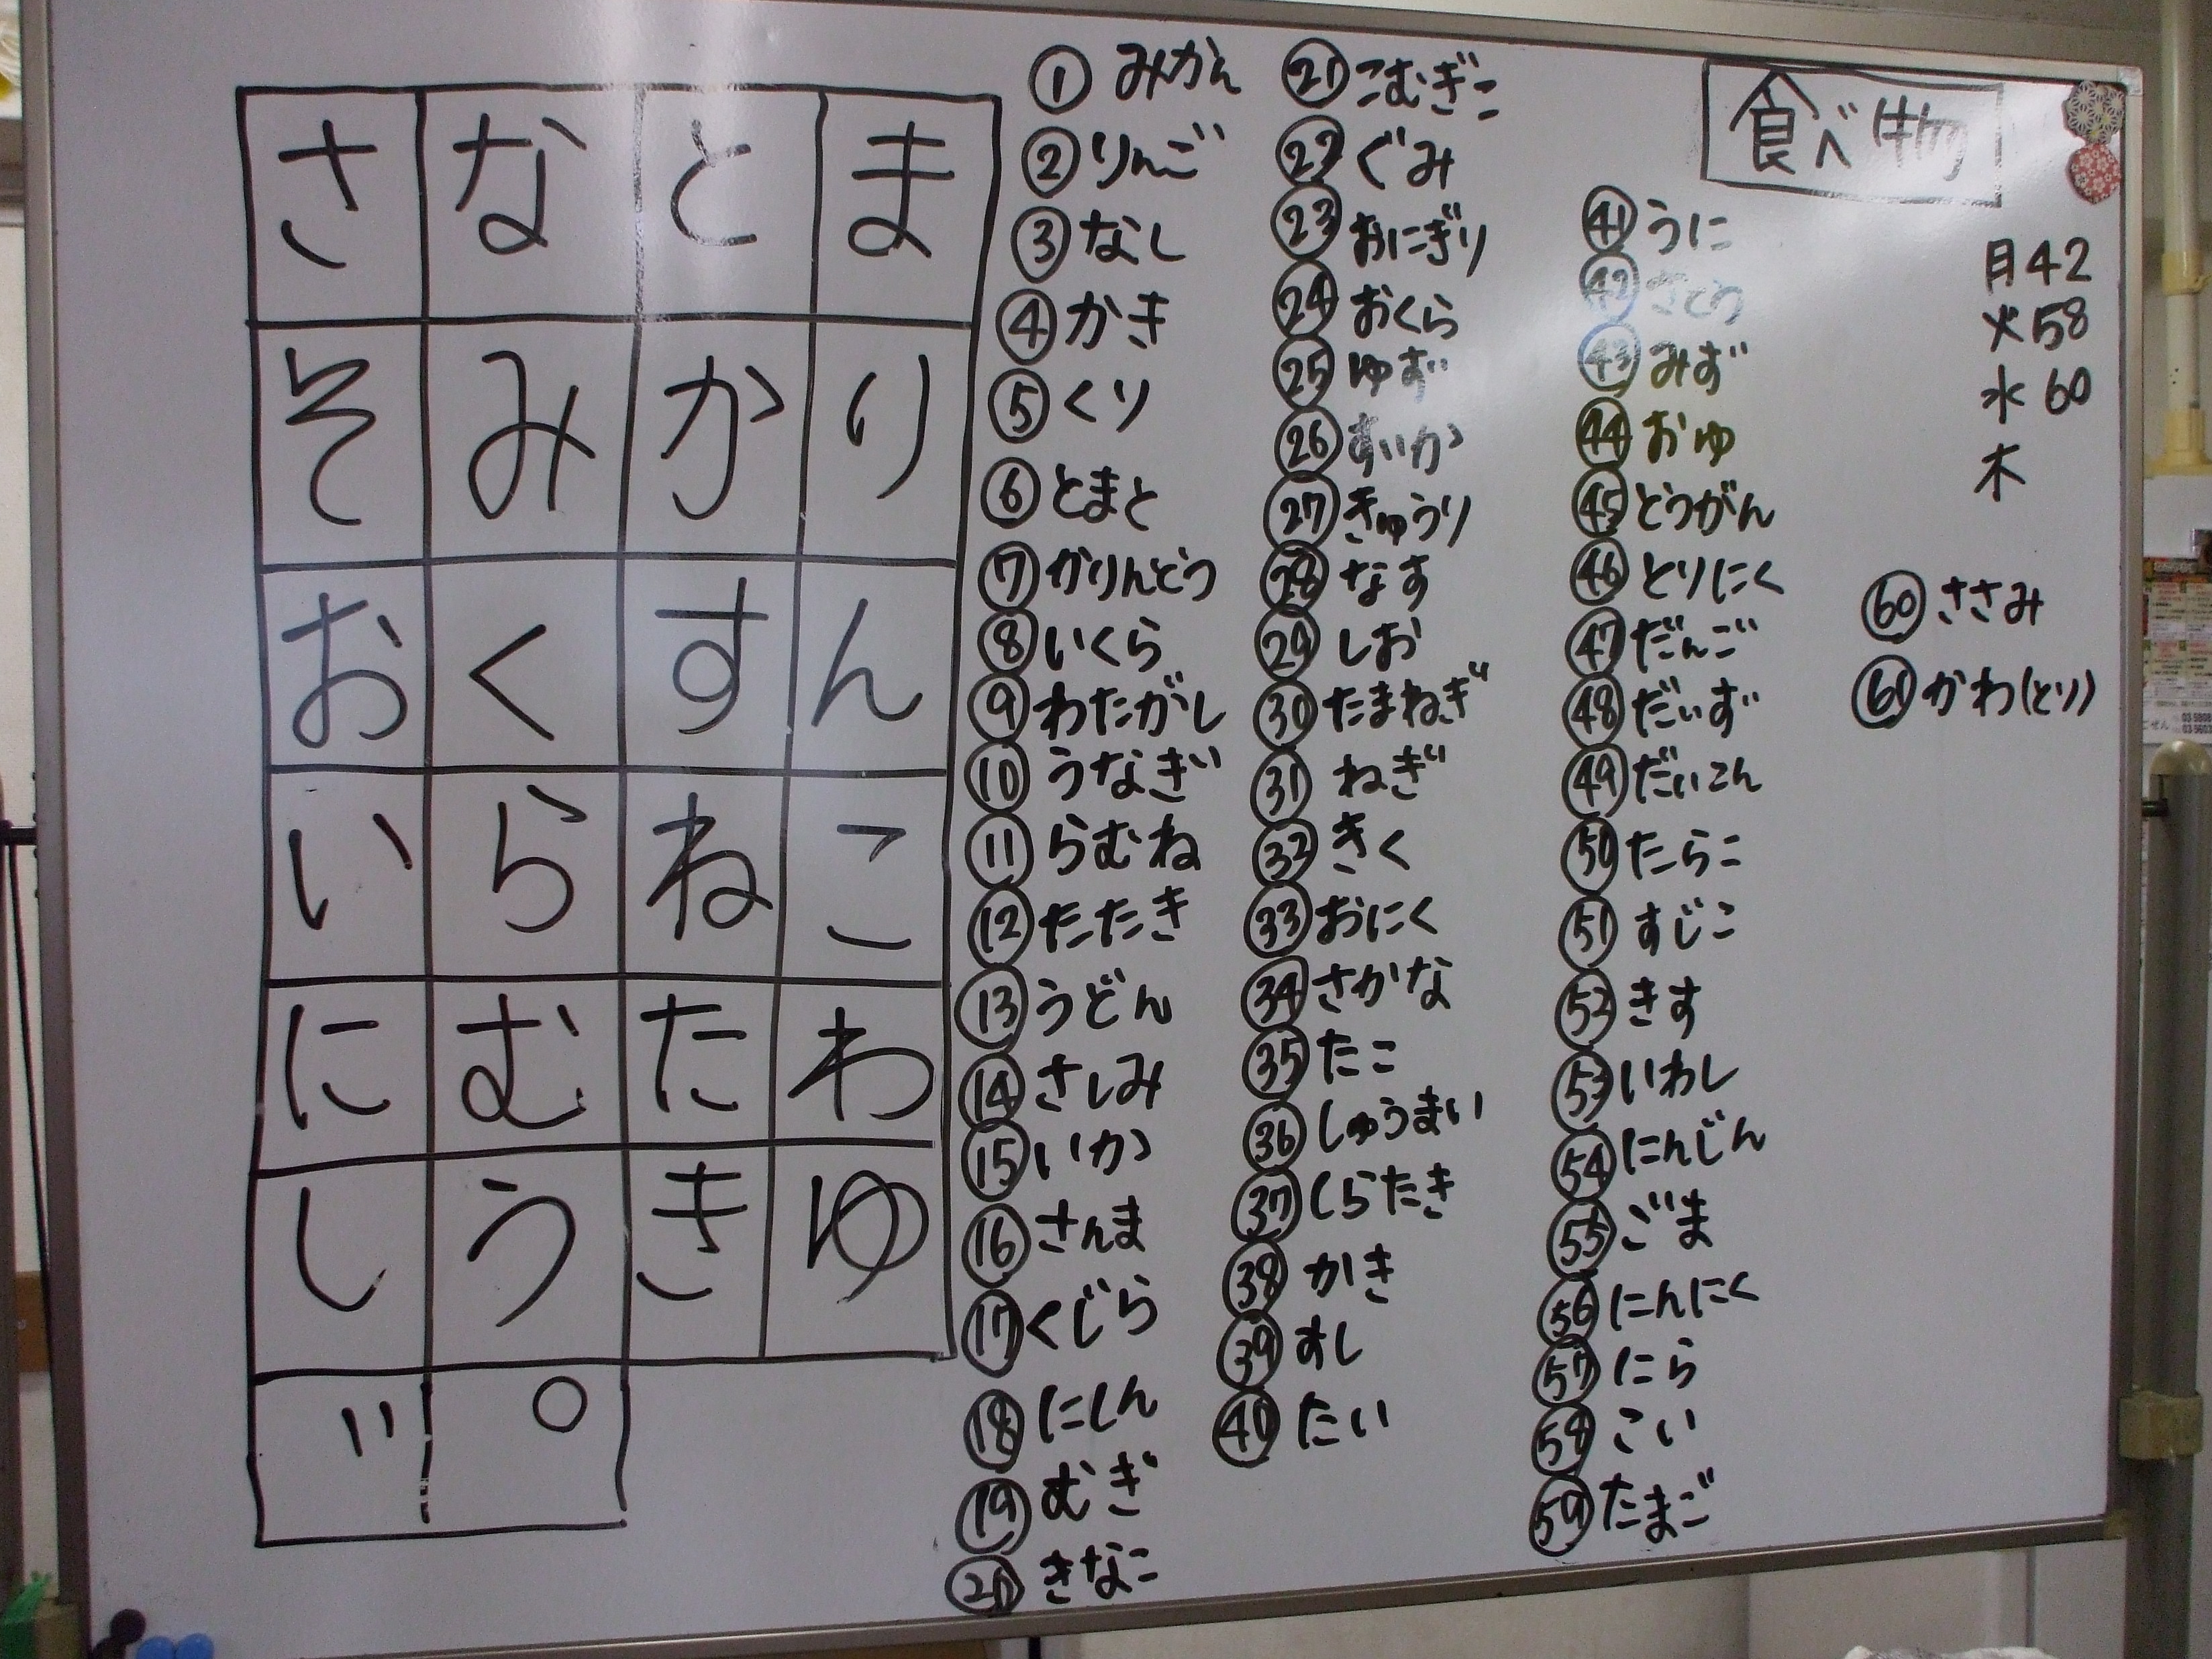 さ な と ま
そ み か り
お く す ん
い ら ね こ
に む た わ
し う き ゆ
゛ ゜
① みかん
② りんご
③ なし
④ かき
⑤ くり
⑥ とまと
⑦ かりんとう
⑧ いくら
⑨ わたがし
⑩ うなぎ
⑪ らむね
⑫ たたき
⑬ うどん
⑭ さしみ
⑮ いか
⑯ さんま
⑰ くじら
⑱ にしん
⑲ むぎ
⑳ きなこ
㉑ こむぎこ
㉒ ぐみ
㉓ おにぎり
㉔ おくら
㉕ ゆず
㉖ すいか
㉗ きゅうり
㉘ なす
㉙ しお
㉚ たまねぎ
㉛ ねぎ
㉜ きく
㉝ おにく
㉞ さかな
㉟ たこ
㊱ しゅうまい
㊲ しらたき
㊳ かき
㊴ すし
㊵ たい
食べ物
㊶ うに
㊷ さとう
㊸ みず
㊹ おゆ
㊺ とうがん
㊻ とりにく
㊼ だんご
㊽ だいず
㊾ だいこん
㊿ たらこ
51 すじこ
52 きす
53 いわし
54 にんじん
55 ごま
56 にんにく
57 にら
58 こい
59 たまご
月42
火58
水60
木
60 ささみ
61 かわ(とり)